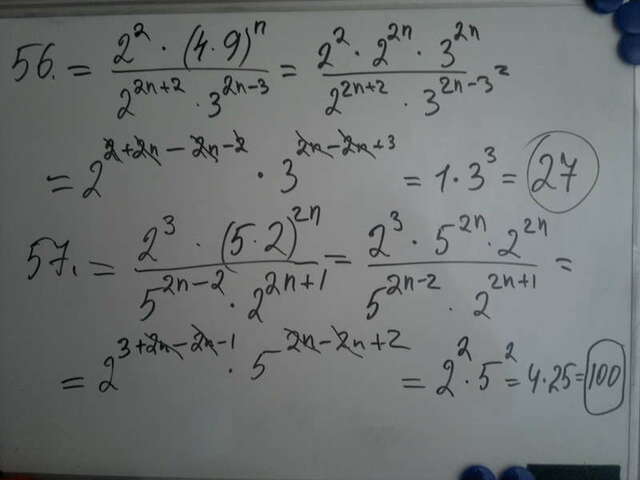 56. = 2² · (4·9)ⁿ / 2²ⁿ⁺² · 3²ⁿ⁻³ = 2² · 2²ⁿ · 3²ⁿ / 2²ⁿ⁺² · 3²ⁿ⁻³ =
= 2²⁺²ⁿ⁻²ⁿ⁻² · 3²ⁿ⁻²ⁿ⁺³ = 1·3³ = 27
57. = 2³ · (5·2)²ⁿ / 5²ⁿ⁻² · 2²ⁿ⁺¹ = 2³ · 5²ⁿ · 2²ⁿ / 5²ⁿ⁻² · 2²ⁿ⁺¹ =
= 2³⁺²ⁿ⁻²ⁿ⁻¹ · 5²ⁿ⁻²ⁿ⁺² = 2² · 5² = 4·25 = 100